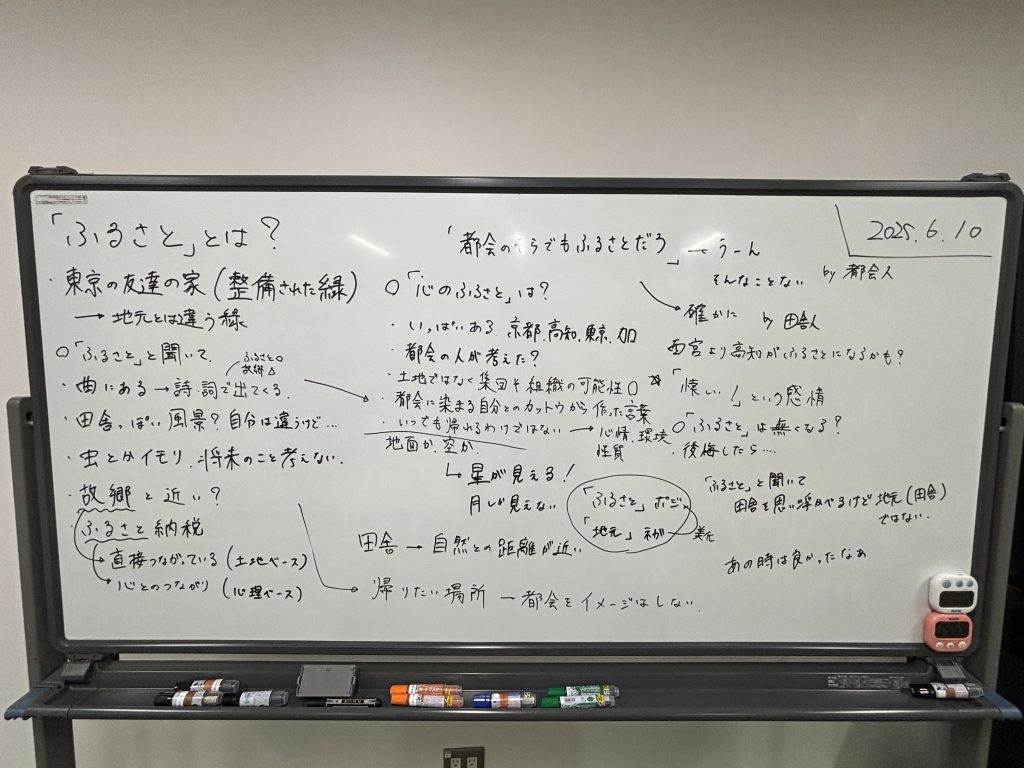 「ふるさと」とは？
・東京の友達の家（整備された緑）
→地元とは違う緑
○「ふるさと」と聞いて、
ふるさと○
故郷△
・曲にある→詩・詞で出てくる
・田舎っぽい風景？自分は違うけど…
・虫とかイモリ、将来のこと考えない.
・故郷と近い？
・ふるさと納税
→直接つながっている（土地ベース）
→心とのつながり（心理ベース）
「都会のそらでもふるさとだろう」→うーん
そんなことない by 都会人
→確かに by 田舎人
○「心のふるさと」は？
・いっぱいある 京都、高知、東京、加
・都会の人が考えた？
・土地ではなく集団や組織の可能性○
・都会に染まる自分とのカットウから作った言葉
・いつでも帰れるわけではない→心情、環境
性質
地面か、空か、
↳星が見える！
月しか見えない
田舎→自然との距離が近い
→帰りたい場所―都会をイメージはしない.
「ふるさと」ポジ
「地元」ネガ
2025.6.10
西宮より高知がふるさとになるかも？
☆「懐しい！」という感情
○「ふるさと」は無くなる？
・後悔したら….
「ふるさと」と聞いて
田舎を思い浮かべるけど地元（田舎）
ではない.
あの時は良かったなぁ